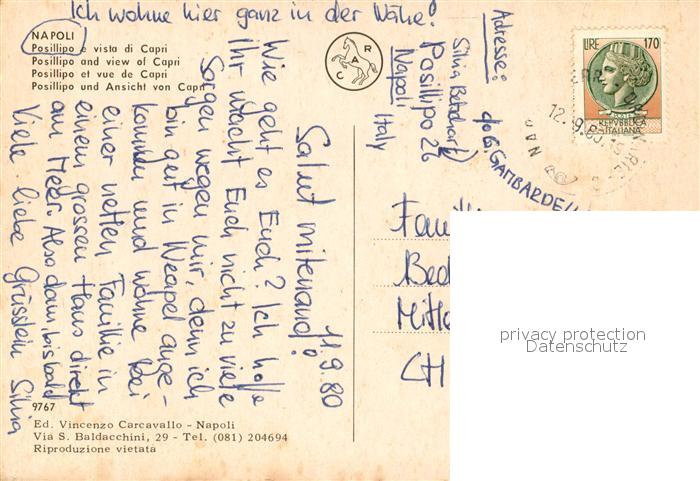 Ich wohne hier ganz in der Nähe!
NAPOLI
Posillipo e vista di Capri
Posillipo and view of Capri
Posillipo et vue de Capri
Posillipo und Ansicht von Capri
R
A
C
Adresse:
Silvia
Posillipo 26
Napoli
Italy
c/o G. GAMBARDE
LIRE 170
REPVBBLICA
ITALIANA
11.9.80
Salut mitenand!
Wie geht es Euch? Ich hoffe
Ihr macht Euch nicht zu viele
Sorgen wegen mir, denn ich
bin gut in Neapel ange-
kommen und wohne bei
einer netten Familie in
einem grossen Haus direkt
am Meer. Also dann, bis bald
Viele liebe Grüsslein Silvia
Famili
Bec
Mitt
CH
privacy protection
Datenschutz
9767
Ed. Vincenzo Carcavallo - Napoli
Via S. Baldacchini, 29 - Tel. (081) 204694
Riproduzione vietata